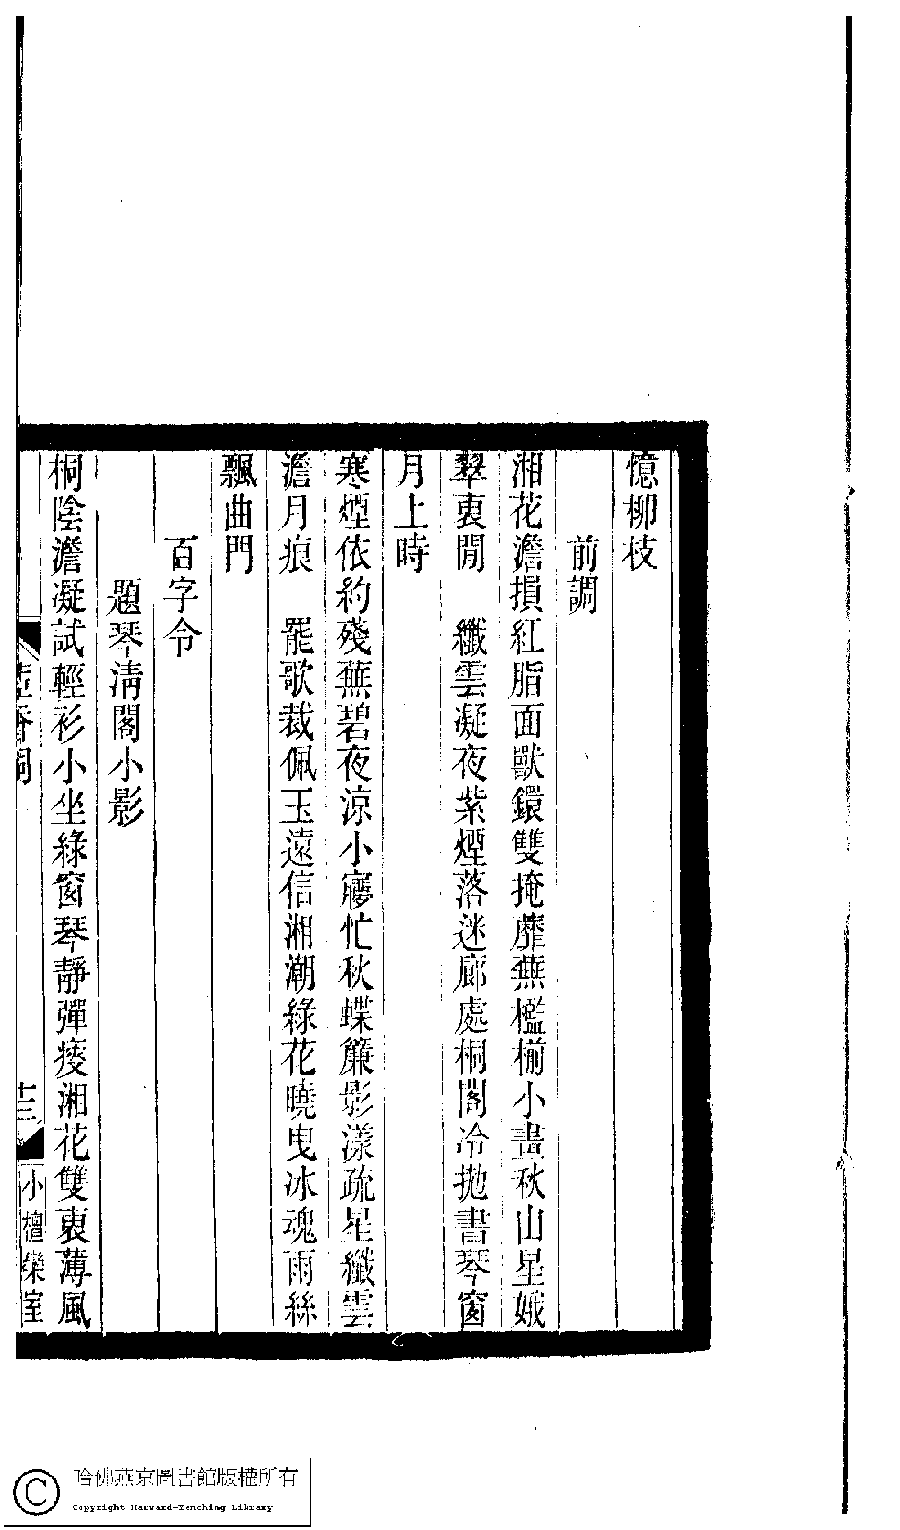 憶柳枝
前調
湘花澹損紅脂面獸鐶雙掩蘼蕪檻槏小畫秋山星娥
翠裏閒　纖雲凝夜紫煙落迷廊處桐閣冷拋書琴窗
月上時
寒煙依約殘蕪碧夜涼小㝱忙秋蝶簾影漾疏星纖雲
澹月痕　罷歌裁佩玉遠信湘潮綠花曉曳冰魂雨絲
飄曲門
百字令
題琴淸閣小影
桐陰澹凝試輕衫小坐綠窗琴靜彈瘦湘花雙裏薄風
十三
小檀欒室
哈佛燕京圖書館版權所有
Copyright Harvard-Yenching Library